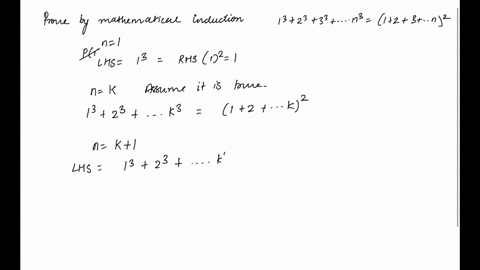 Prove by mathematical induction 1³+2³+3³+....n³ = (1+2+3+..n)²
n=1
LHS = 1³ = RHS (1)²=1
n=K Assume it is true.
1³+2³+...k³ = (1+2+...k)²
n=K+1
LHS = 1³+2³+....k'